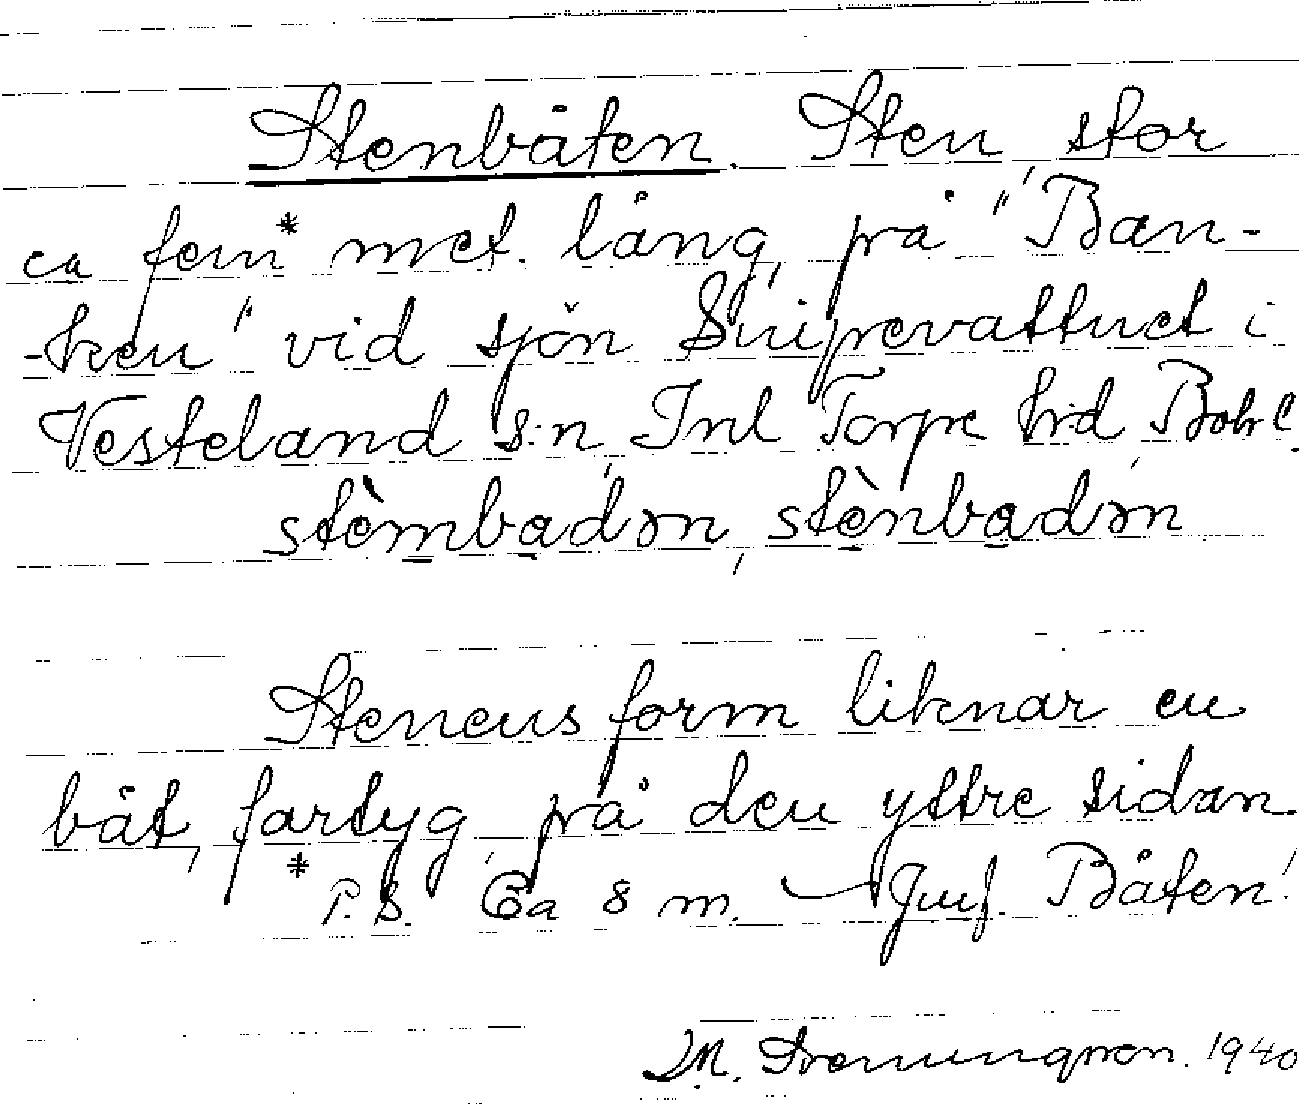 Stenbåten. Sten, stor
ca fem* met. lång, på "Ban-
-ken" vid sjön Snipevattnet i
Vesteland s:n, Inl Torpe hrd, Bohl.
stèmbadən, stènbadən
Stenens form liknar en
båt, fartyg, på den yttre sidan.
* P.S. Ca 8 m. Jmf. Båten!
M. 1940